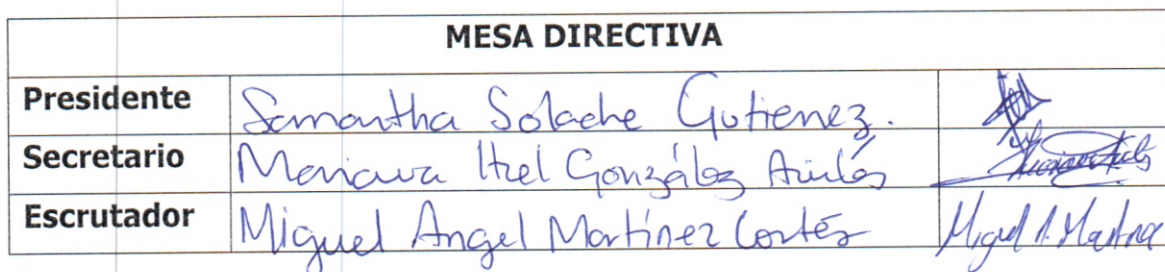 MESA DIRECTIVA
Presidente Samantha Solache Gutierrez.
Secretario Itzel González
Escrutador Miguel Angel Martínez Cortés Miguel A. Martínez